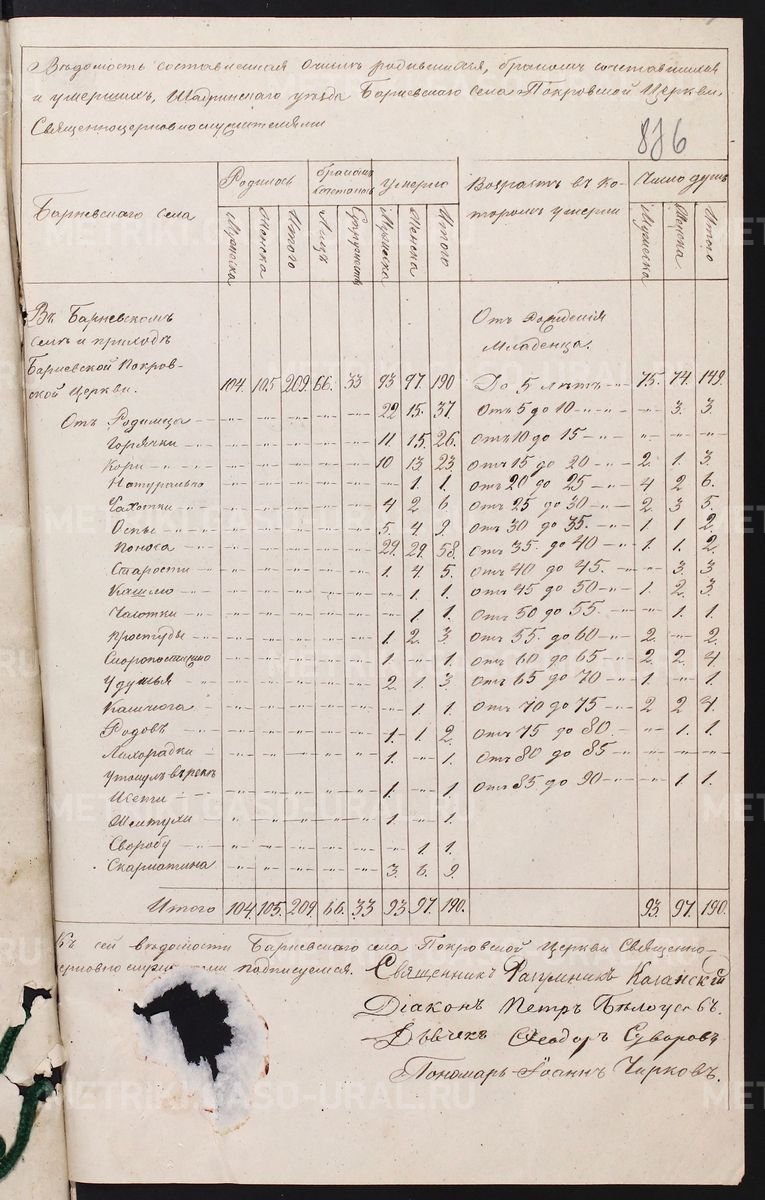 Вѣдомость составленная о числѣ родившихся, бракомъ сочетавшихся
и умершихъ, Шадринскаго уѣзда Барневскаго села Покровской Церкви,
Священноцерковнослужителями
876
Барневскаго села Родилось бракомъ сочеталось умерло Возрастъ въ которомъ умерли Число душъ
Мужеска Женска Итого Лицъ Супружествъ Мужеска Женска Итого Мужеска Женска Итого
Въ Барневскомъ Отъ Рожденія
селѣ и приходѣ Младенца.
Барневской Покров-
ской Церкви. 104. 105 209. 66. 33 93 97. 190 До 5 лѣтъ 75. 74. 149.
Отъ Родимца 22 15. 37. Отъ 5 до 10 " 3. 3.
Горячки 11 15. 26. отъ 10 до 15 " " "
Кори 10 13 23. отъ 15 до 20 2. 1. 3.
Натурально " 1. 1. отъ 20 до 25 4 2 6.
Чахотки 4 2 6. отъ 25 до 30 2. 3 5.
Оспы 5. 4. 9. отъ 30 до 35. 1. 1 2.
Поноса 29. 29. 58. отъ 35. до 40 1. 1. 2.
Старости 1. 4. 5. отъ 40 до 45. " 3. 3
Кашлю " 1. 1. отъ 45 до 50 1. 2. 3.
Чахотки " 1 1. отъ 50 до 55. " 1. 1.
Простуды 1 2. 3. отъ 55. до 60 2. " 2.
Скоропостижно 1. " 1. отъ 60 до 65 2. 2. 4
Удушья 2. 1. 3 отъ 65 до 70 1. " 1.
" 1. 1. отъ 70 до 75 2 2 4.
Родовъ 1. 1 2. отъ 75 до 80. " 1. 1.
Лихорадки 1. " 1. отъ 80 до 85 " " "
Утонулъ въ рекѣ
1. " 1. отъ 85 до 90 " 1 1.
1. " 1.
" 1 1.
Скарлатина 3. 6. 9.
Итого 104. 105. 209 66. 33 93 97. 190. 93. 97. 190.
Къ сей вѣдомости Барневскаго села Покровской Церкви Священно-
подписуемся. Священникъ Разумникъ Казанскій
Діаконъ Петръ Бѣлоусовъ.
Дьячекъ Ѳеодоръ Суворовъ
Пономарь Іоаннъ Чирковъ.
METRIKI.GASO-URAL.RU